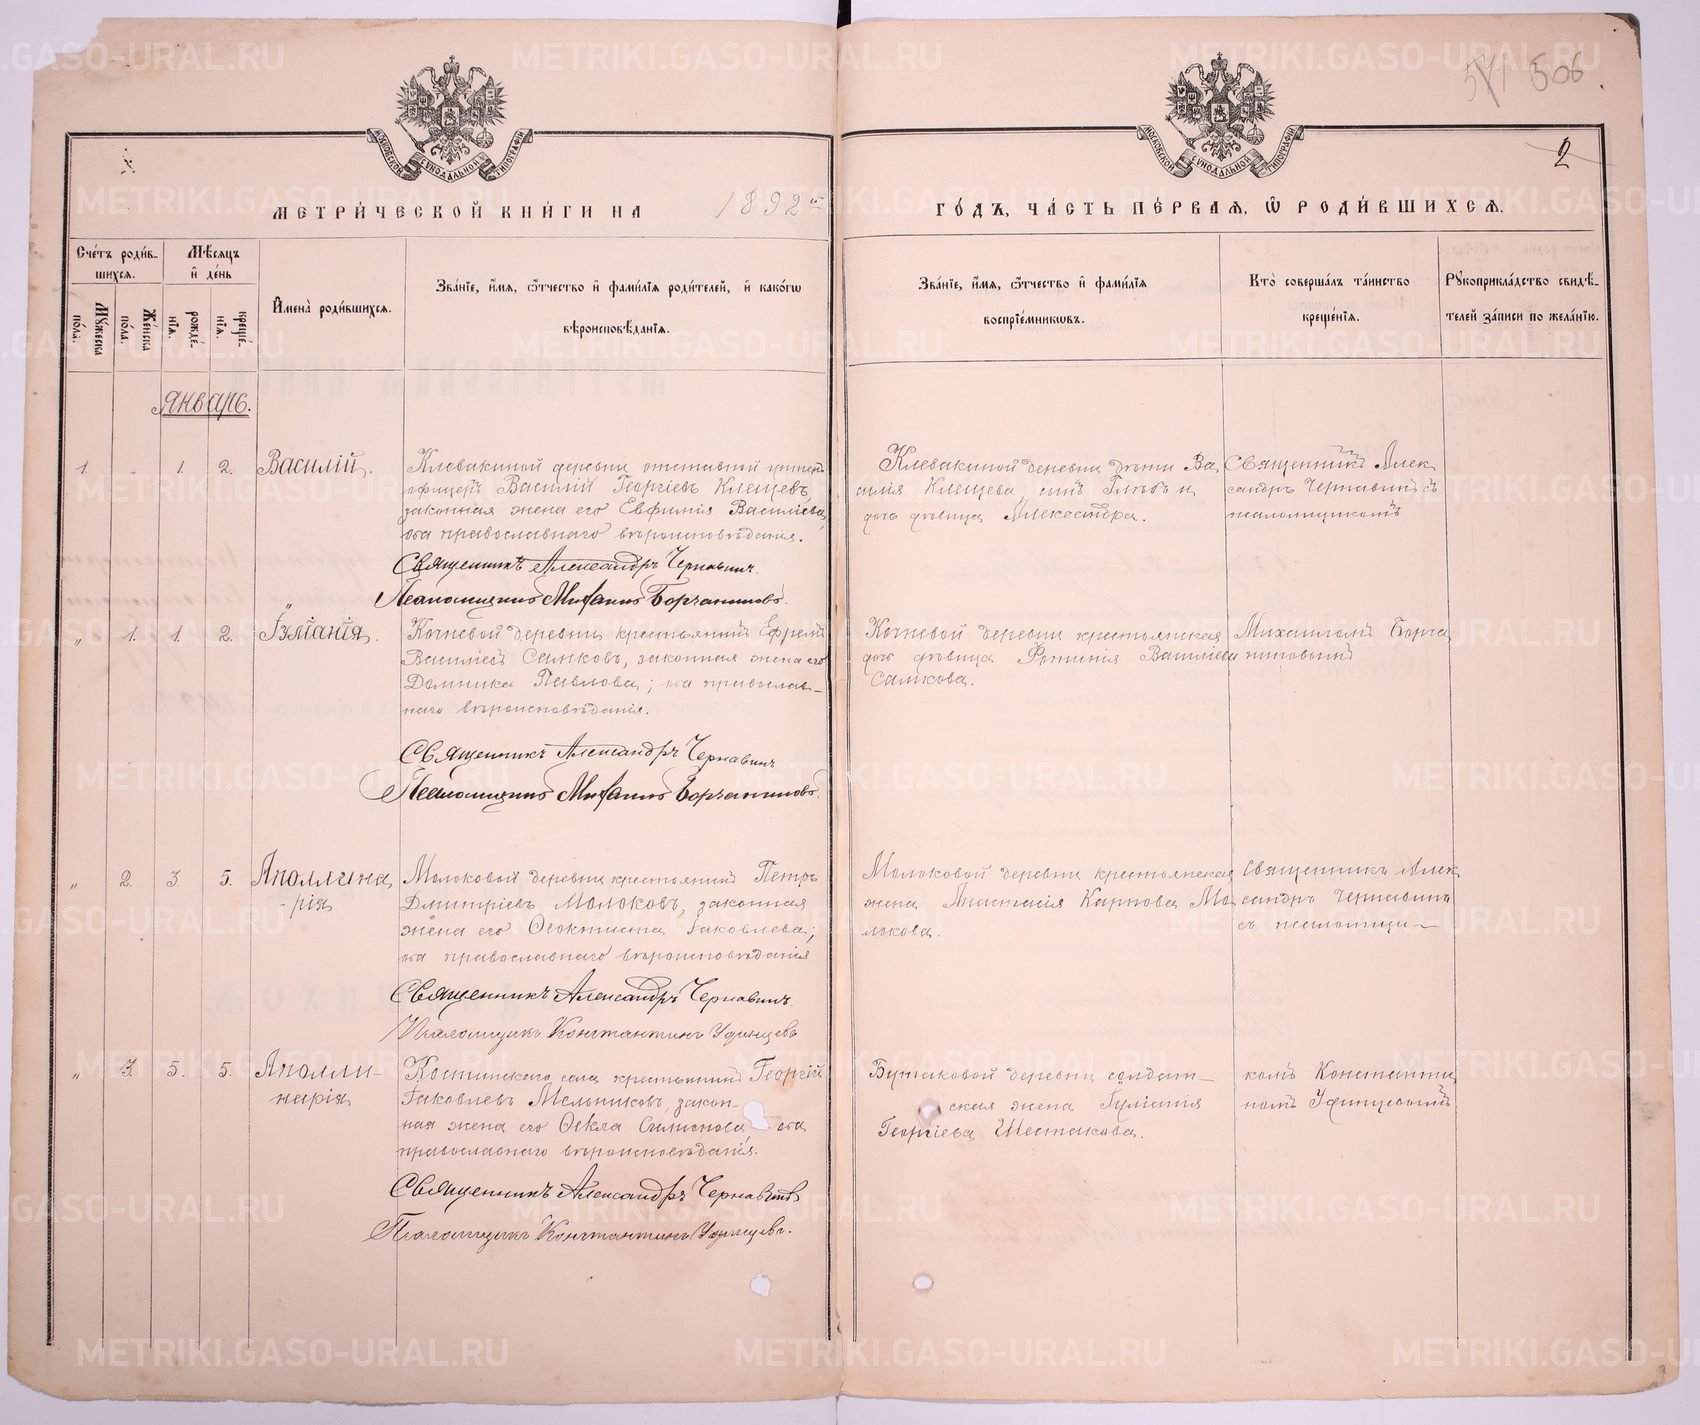 571 506
МОСКОВСКОЙ СѴНОДАЛЬНОЙ ТИПОГРАФІИ
МОСКОВСКОЙ СѴНОДАЛЬНОЙ ТИПОГРАФІИ
2
МЕТРИ́ЧЕСКОЙ КНИ́ГИ НА 1892 ГО́ДЪ, ЧА́СТЬ ПЕ́РВАѦ, Ѽ РОДИ́ВШИХСѦ.
Сче́тъ роди́в-
шихсѧ.
Мѣ́сѧцъ
и҆ де́нь
Мꙋжеска
по́ла.
Же́нска
по́ла.
рожде́-
нїѧ.
креще́-
нїѧ.
И҆мена̀ роди́вшихсѧ.
Зва́нїе, и҆́мѧ, ѻ҆́тчество и҆ фами́лїѧ роди́телей, и҆ како́гѡ
вѣроисповѣ́данїѧ.
Зва́нїе, и҆́мѧ, ѻ҆́тчество и҆ фами́лїѧ
воспрїе́мникѡвъ.
Кто̀ соверша́лъ та́инство
креще́нїѧ.
Рꙋкоприкла́дство свидѣ́-
телей за́писи по жела́нїю.
Январь.
1. „ 1. 2. Василій.
Клевакиной деревни отставной унтеръ
офицеръ Василій Георгіевъ Клещевъ,
законная жена его Евфимія Василіева,
оба православнаго вѣроисповѣданія.
Священникъ Александръ Чернавинъ.
Псаломщикъ Михаилъ Борчаниновъ.
Клевакиной деревни дѣти Ва
силія Клещева, сынъ Глѣбъ и
дочь дѣвица Александра.
Священникъ Алек
сандръ Чернавинъ съ
псаломщикомъ
„ 1. 1. 2. Іуліанія.
Кочневой деревни крестьянинъ Ефремъ
Василіевъ Самковъ, законная жена его
Домника Павлова; оба православ-
наго вѣроисповѣданія.
Священникъ Александръ Чернавинъ
Псаломщикъ Михаилъ Борчаниновъ.
Кочневой деревни крестьянская
дочь дѣвица Фотинія Василіева
Самкова.
Михаиломъ Борча
ниновымъ
„ 2. 3 5. Аполлина
-рія
Молоковой деревни крестьянинъ Петръ
Дмитріевъ Молоковъ, законная
жена его Ѳеоктиста Іаковлева;
оба православнаго вѣроисповѣданія
Священникъ Александръ Чернавинъ.
Псаломщикъ Константинъ Удинцевъ
Молоковой деревни крестьянская
жена Анастасія Карпова Мо
локова.
Священникъ Алек
сандръ Чернавинъ
съ псаломщи-
„ 3. 5. 5. Аполли-
нарія
Костинскаго села крестьянинъ Георгій
Іаковлевъ Мельниковъ, закон-
ная жена его Ѳекла Симонова оба
православнаго вѣроисповѣданія.
Священникъ Александръ Чернавинъ
Псаломщикъ Константинъ Удинцевъ.
Бутаковой деревни солдат-
ская жена Іуліанія
Георгіева Шестакова.
комъ Константи
номъ Удинцевымъ
METRIKI.GASO-URAL.RU